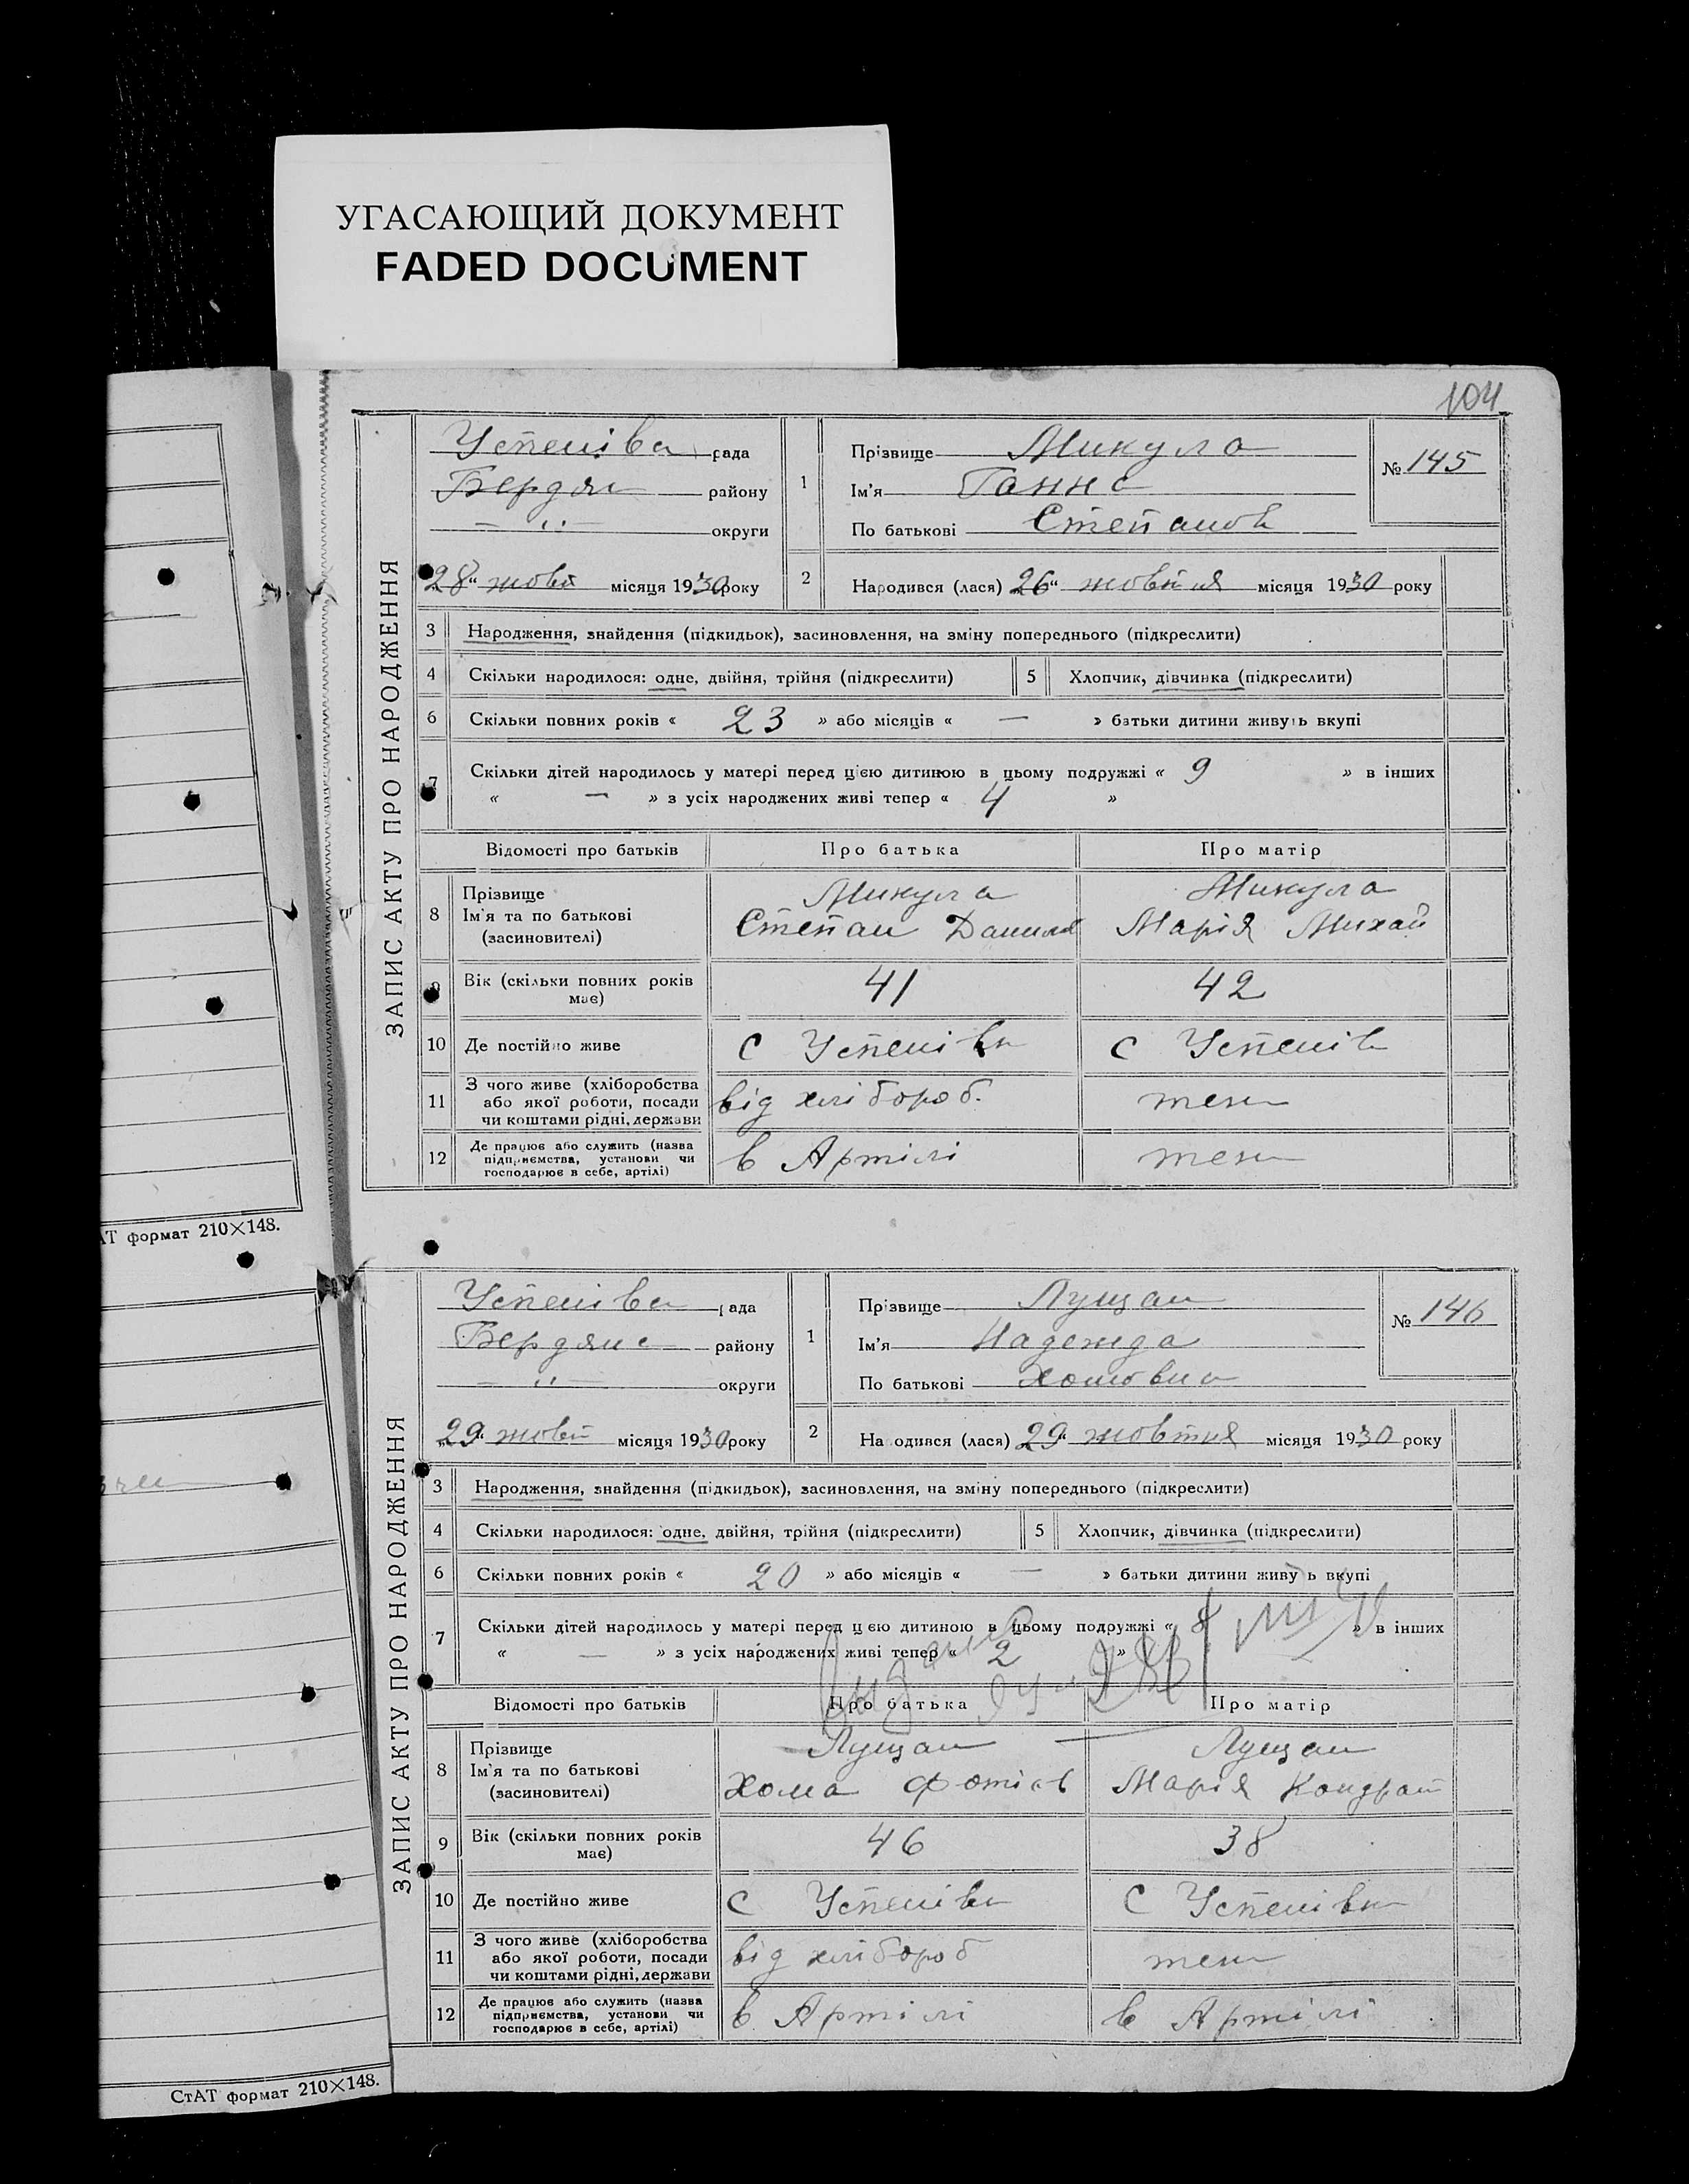 УГАСАЮЩИЙ ДОКУМЕНТ
FADED DOCUMENT
104
ЗАПИС АКТУ ПРО НАРОДЖЕННЯ
Успенівка рада
Бердян району
— " — округи
28 " жовт місяця 1930 року
1 Прізвище Микула
Ім'я Ганна
По батькові Степанов
№ 145
2 Народився (лася) 26 " жовтня місяця 1930 року
3 Народження, знайдення (підкидьок), засиновлення, на зміну попереднього (підкреслити)
4 Скільки народилося: одне, двійня, трійня (підкреслити) 5 Хлопчик, дівчинка (підкреслити)
6 Скільки повних років « 23 » або місяців « — » батьки дитини живуть вкупі
7 Скільки дітей народилось у матері перед цією дитиною в цьому подружжі « 9 » в інших
« — » з усіх народжених живі тепер « 4 »
Відомості про батьків Про батька Про матір
8 Прізвище Микула Микула
Ім'я та по батькові Степан Данилов Марія Михай
(засиновителі)
9 Вік (скільки повних років 41 42
має)
10 Де постійно живе с Успенівка с Успенів
11 З чого живе (хліборобства
або якої роботи, посади від хлібороб. теж
чи коштами рідні, держави
12 Де працює або служить (назва
підприємства, установи чи в Артілі теж
господарює в себе, артілі)
АТ формат 210×148.
ЗАПИС АКТУ ПРО НАРОДЖЕННЯ
Успенівка рада
Бердянс району
— " — округи
" 29 " жовт місяця 1930 року
1 Прізвище Лущан
Ім'я Надежда
По батькові Хомовна
№ 146
2 Народився (лася) 29 " жовтня місяця 1930 року
3 Народження, знайдення (підкидьок), засиновлення, на зміну попереднього (підкреслити)
4 Скільки народилося: одне, двійня, трійня (підкреслити) 5 Хлопчик, дівчинка (підкреслити)
6 Скільки повних років « 20 » або місяців « — » батьки дитини живуть вкупі
7 Скільки дітей народилось у матері перед цією дитиною в цьому подружжі « 8 » в інших
« — » з усіх народжених живі тепер « 2 »
Відомості про батьків Про батька Про матір
8 Прізвище Лущан Лущан
Ім'я та по батькові Хома Фотіев Марія Кондрат
(засиновителі)
9 Вік (скільки повних років 46 38
має)
10 Де постійно живе с Успенівка с Успенівка
11 З чого живе (хліборобства
або якої роботи, посади від хлібороб теж
чи коштами рідні, держави
12 Де працює або служить (назва
підприємства, установи чи в Артілі в Артілі
господарює в себе, артілі)
СтАТ формат 210×148.